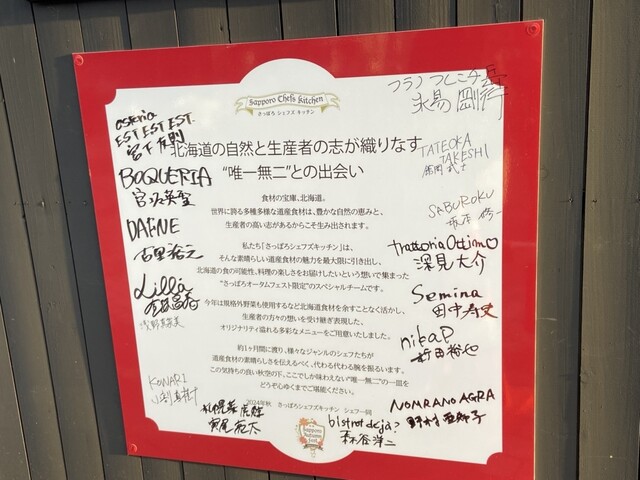 Sapporo Chefs Kitchen
さっぽろ シェフズ キッチン
北海道の自然と生産者の志が織りなす
“唯一無二”との出会い
食材の宝庫、北海道。
世界に誇る多種多様な道産食材は、豊かな自然の恵みと、
生産者の高い志があるからこそ生み出されます。
私たち「さっぽろシェフズキッチン」は、
そんな素晴らしい道産食材の魅力を最大限に引き出し、
北海道の食の可能性、料理の楽しさをお届けしたいという想いで集まった
“さっぽろオータムフェスト限定”のスペシャルチームです。
今年は規格外野菜も使用するなど北海道食材を余すことなく活かし、
生産者の方々の想いを受け継ぎ表現した、
オリジナリティ溢れる多彩なメニューをご用意いたしました。
約1ヶ月間に渡り、様々なジャンルのシェフたちが
道産食材の素晴らしさを伝えるべく、代わる代わる腕を振るいます。
この気持ちの良い秋空の下、ここでしか味わえない“唯一無二”の一皿を
どうぞ心ゆくまでご堪能ください。
2024年秋 さっぽろシェフズキッチン シェフ一同
Sapporo Autumn Fest
osteria
EST EST EST.
BOQUERIA
DAFNE
古里
Lilla
KONARI
札幌
bistrot déjà?
フラノ
TATEOKA
TAKESHI
SABUROKU
trattoria Ottimo
深見 大介
Semina
田中
nikaP
町田
NOMRANO AGRA
野村